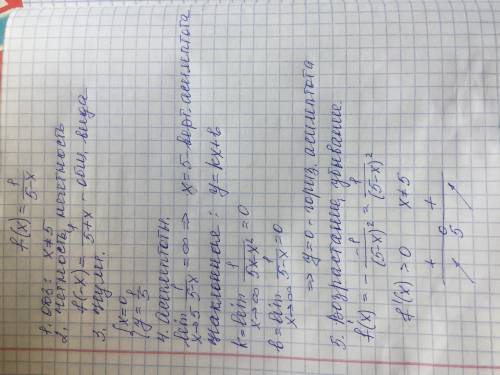 f(x) = 1/(5-x)
1. ОДЗ: x≠5
2. четность, нечетность
f(-x) = 1/(5+x) - общ. вида
3.
{ x=0
{ y=1/5
4. Асимптоты.
lim x→5 1/(5-x) = ∞ ⇒ x=5 - верт. асимптота
Наклонная: y=kx+b
k = lim x→∞ 1/(5x-x²) = 0
b = lim x→∞ 1/(5-x) = 0
⇒ y=0 - гориз. асимптота
5. Возрастание, убывание.
f'(x) = - -1/(5-x)² = 1/(5-x)²
f'(x) > 0 x≠5
+ 0 +
5